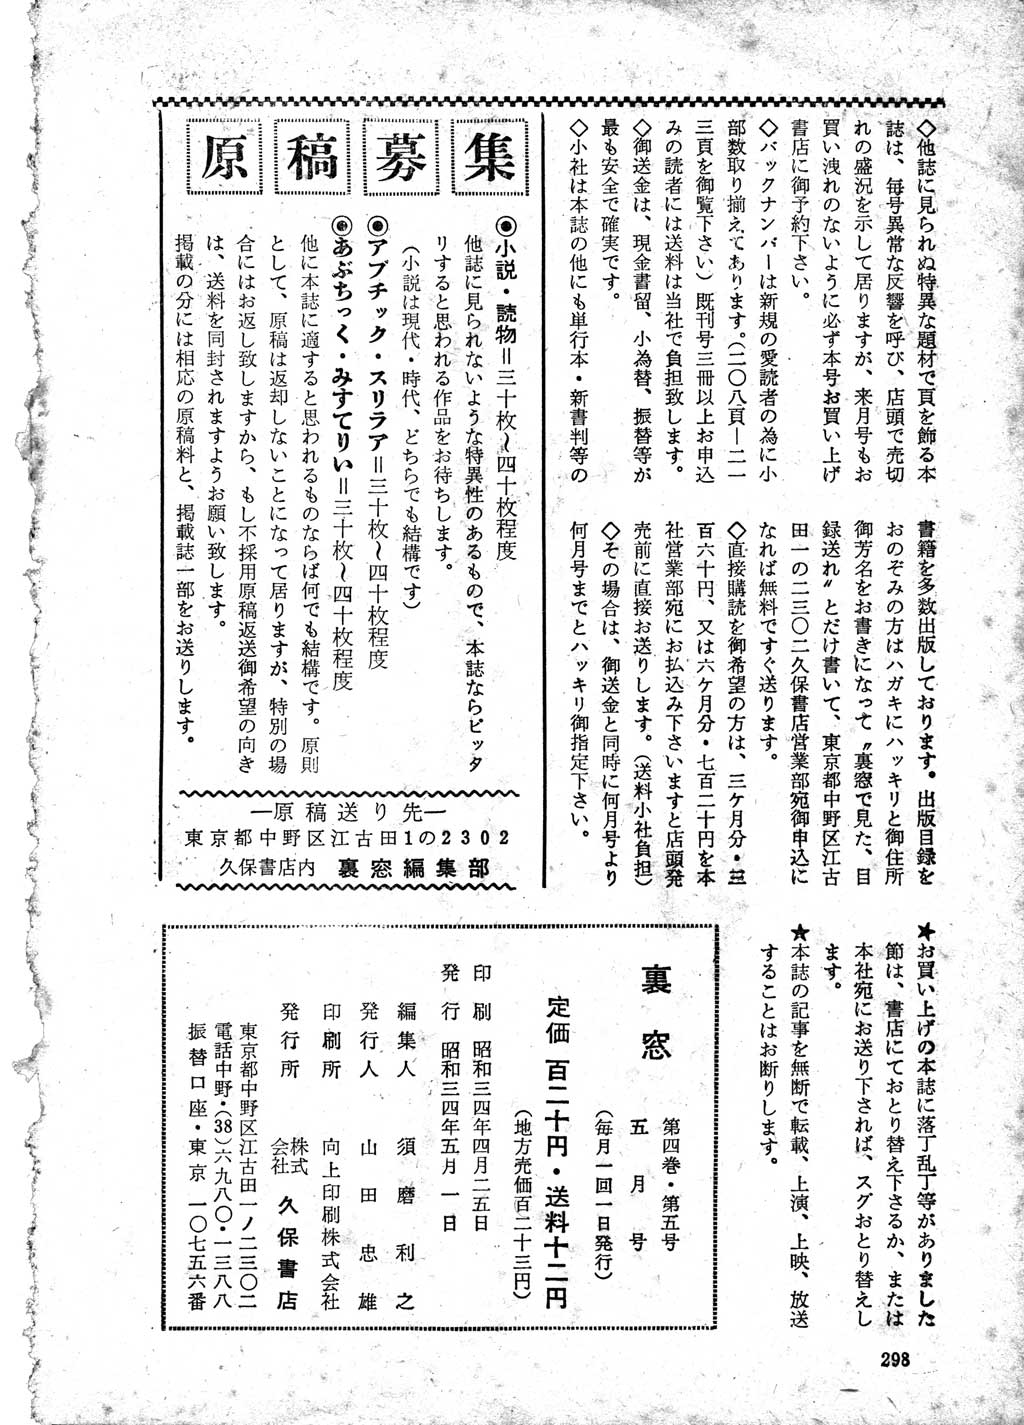 ◇他誌に見られぬ特異な題材で頁を飾る本
誌は、毎号異常な反響を呼び、店頭で売切
れの盛況を示して居りますが、来月号もお
買い洩れのないように必ず本号お買い上げ
書店に御予約下さい。
◇バックナンバーは新規の愛読者の為に小
部数取り揃えてあります。(二〇八頁―二一
三頁を御覧下さい)既刊号三冊以上お申込
みの読者には送料は当社で負担致します。
◇御送金は、現金書留、小為替、振替等が
最も安全で確実です。
◇小社は本誌の他にも単行本・新書判等の
書籍を多数出版しております。出版目録を
おのぞみの方はハガキにハッキリと御住所
御芳名をお書きになって〝裏窓で見た、目
録送れ〟とだけ書いて、東京都中野区江古
田一の二三〇二久保書店営業部宛御申込に
なれば無料ですぐ送ります。
◇直接購読を御希望の方は、三ケ月分・三
百六十円、又は六ケ月分・七百二十円を本
社営業部宛にお払込み下さいますと店頭発
売前に直接お送りします。(送料小社負担)
◇その場合は、御送金と同時に何月号より
何月号までとハッキリ御指定下さい。
原稿募集
◉小説・読物=三十枚〜四十枚程度
他誌に見られないような特異性のあるもので、本誌ならピッタ
リすると思われる作品をお待ちします。
(小説は現代・時代、どちらでも結構です)
◉アブチック・スリラア=三十枚〜四十枚程度
◉あぶちっく・みすてりい=三十枚〜四十枚程度
他に本誌に適すると思われるものならば何でも結構です。原則
として、原稿は返却しないことになって居りますが、特別の場
合にはお返し致しますから、もし不採用原稿返送御希望の向き
は、送料を同封されますようお願い致します。
掲載の分には相応の原稿料と、掲載誌一部をお送りします。
―原稿送り先―
東京都中野区江古田1の2302
久保書店内 裏窓編集部
★お買い上げの本誌に落丁乱丁等がありました
節は、書店にておとり替え下さるか、または
本社宛にお送り下されば、スグおとり替えし
ます。
★本誌の記事を無断で転載、上演、上映、放送
することはお断りします。
裏窓
第四巻・第五号
五月号
(毎月一回一日発行)
定価 百二十円・送料十二円
(地方売価百二十三円)
印刷 昭和三四年四月二五日
発行 昭和三四年五月一日
編集人 須磨利之
発行人 山田忠雄
印刷所 向上印刷株式会社
発行所 株式会社 久保書店
東京都中野区江古田一ノ二三〇二
電話中野・(38)六九八〇・一三八八
振替口座・東京 一〇七五六番
298